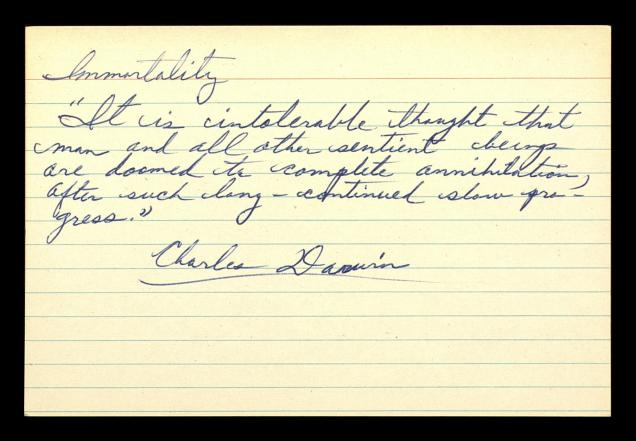 Immortality
"It is intolerable thought that
man and all other sentient beings
are doomed to complete annihilation,
after such long-continued slow pro-
gress."
Charles Darwin